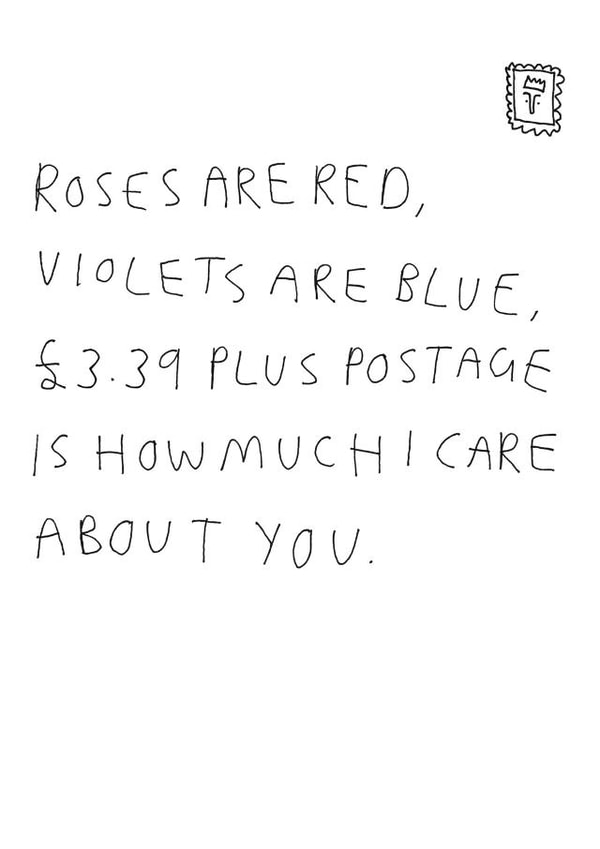 ROSES ARE RED,
VIOLETS ARE BLUE,
£3.39 PLUS POSTAGE
IS HOW MUCH I CARE
ABOUT YOU.